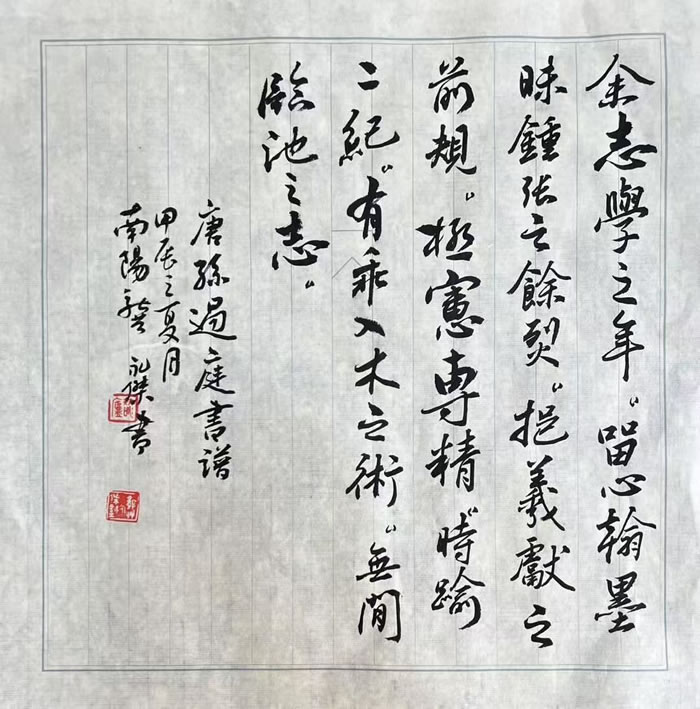 余志學之年。留心翰墨
昧鍾張之餘烈。挹羲獻之
前規。極慮專精。時踰
二紀。有乖入木之術。無間
臨池之志。
唐孫過庭書譜
甲辰之夏月
南陽 永傑書